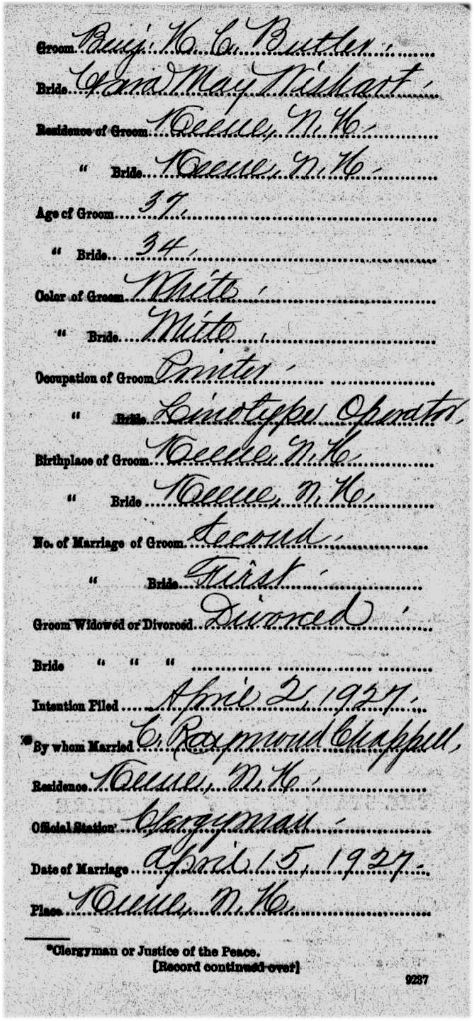 Groom Benj. H. C. Butler.
Bride Cora May Wishart.
Residence of Groom Keene, N. H.
" Bride Keene, N. H.
Age of Groom 37.
" Bride 34.
Color of Groom White.
" Bride White.
Occupation of Groom Printer.
" Bride Linotype Operator.
Birthplace of Groom Keene, N. H.
" Bride Keene, N. H.
No. of Marriage of Groom Second.
" Bride First.
Groom Widowed or Divorced Divorced.
Bride " " "
Intention Filed April 2, 1927.
*By whom Married C. Raymond Chappell,
Residence Keene, N. H.
Official Station Clergyman.
Date of Marriage April 15, 1927.
Place Keene, N. H.
*Clergyman or Justice of the Peace.
[Record continued over]
9237